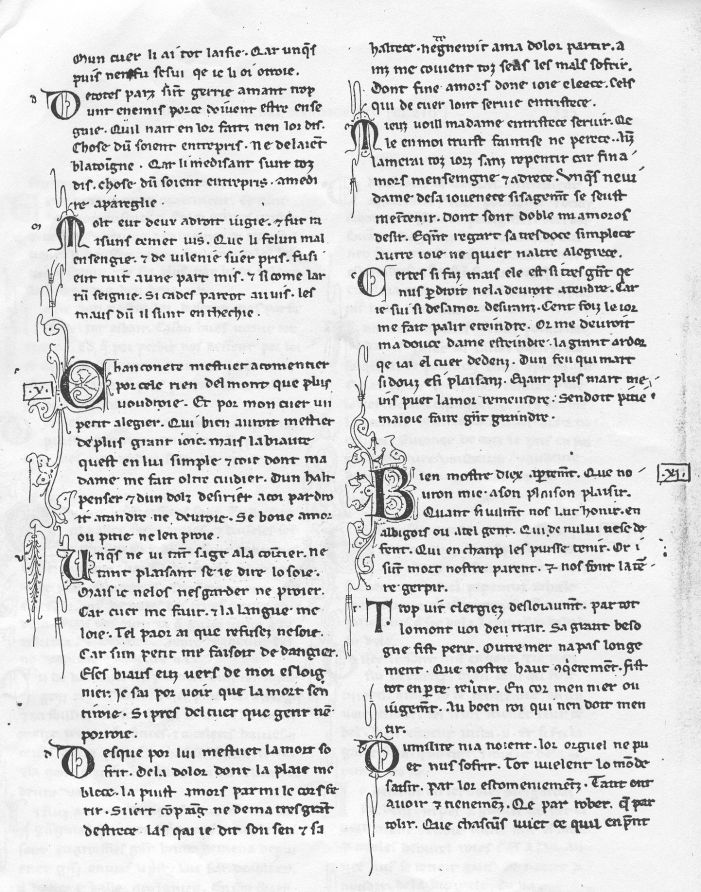 Mun cuer li ai tot laisie. Qar unq̄s
puis nenfu sesui qe ie li oi otroie.
De totes parz sūt gerrie amant trop
unt enemis porce deivent estre ense
gnie. Quil nait en lor faitz nen lor dis.
Chose dū soient entrepris. Ne delaient
blatoīgne. Qar li medisant sunt toz
dis. chose dū soient entrepris. amedi
re apareglie.
Molt eut deus adroit iugie. ⁊ fut ra
isuns cemet vis. Que li felun mal
ensengie. ⁊ de vilenie suēr pris. fusi
ent tuit aune part mis. ⁊ si come lar
rū seignie. Si cades pareot au vis. les
maus dū il sunt enthechie.
Chanconete mestuet acomentier
por cele rien del mont que plus
voudroie. Et por mon cuer un
petit alegier. Qui bien auroit mestier
de plus grant ioie. mais la biaute
quest en lui simple ⁊ coie dont ma
dame me fait oltre cuidier. Dun halt
penser ⁊ dun dolz desirier a coi par dro
it atandre ne devroie. Se bone amor
ou pitie ne len proie.
Unq̄s ne vi tāt sage ala cointier. ne
tant plaisant se ie dire lo soie.
Mais ie nelos nesgarder ne proier.
Car cuer me faut. ⁊ la langue me
loie. Tel paor ai que refusez nesoie.
Car sun petit me faisoit de dangier.
E ses biaus euz vers de moi esloig
nier. Je sai por voir que la mort sen
tiroie. Si pres del cuer que gent nē
porroie.
Desque por lui mestuet la mort so
frir. De la dolor dont la plaie me
blece. la puist amors par mi le cors fe
rir. Si iert cōpaīg ne dema tres grant
destrece. las qai ie dit son sen ⁊ sa
haltece. negnevoir a ma dolor partir. A
mi me covient toz seās les mals sofrir.
Dont fine amors done ioie eleece. Cels
qui de cuer lont servie entristece.
Mieuz voill madame entristece servir. Qe
le en moi truist faintise ne perece. Aīz
lamerai toz iorz sanz repentir car fina
mors menseingne ⁊ adrece. Unq̄s ne vi
dame de sa iovenece si sagemt̄ se seust
meītenir. dont sont doble mi amoros
desir. Eqn̄t regart sa tresdoce simplece
autre ioie ne quier naltre alegrece.
Certes si faz mais ele est si tres grn̄t qe
nus p̄ droit nela devroit atendre. Car
ie sui si desamor desiranz. Cent foiz le ior
me fait palir eteindre. Or me devroit
ma douce dame esteindre. la grant ardor
qe iai el cuer dedenz. Dun feu qui mart
si douz est plaisanz. Eqant plus mart me
vis puet lamor remeindre. Sen doit pitie
maioie faire grn̄t graindre.
Bien mostre diex aptemt̄. Que no
uron mie a son plaison plaisir.
Quant si vilmt̄ nos lait honir. en
albigois ou a tel gent. Qui de nului nese de
fent. Qui en chanp les puisse tenir. Or i
sūt mort nostre parent. ⁊ nos font la tē
re gerpir.
Trop vit clergiez desloiaumt̄. par tot
lo mont voi deu trair. Sa grant beso
gne fist perir. Outre mer na pas longe
ment. Que nostre haut ꝯq̄remt̄. fist
tot en pte revtir. En cor men nier ou
iugemt̄. Au boen roi qui nen doit men
tir.
Oumilite nia noient. lor orguel ne pu
et nus sofrir. Tot vuelent lo mōde
saisir. par los escomeniemz̄. Tant ont
avoir ⁊ tienemz̄. Qe par rober. q̄ par
tolir. Que chascūs vuiet ce quil enpn̄t
.V.
.XI.